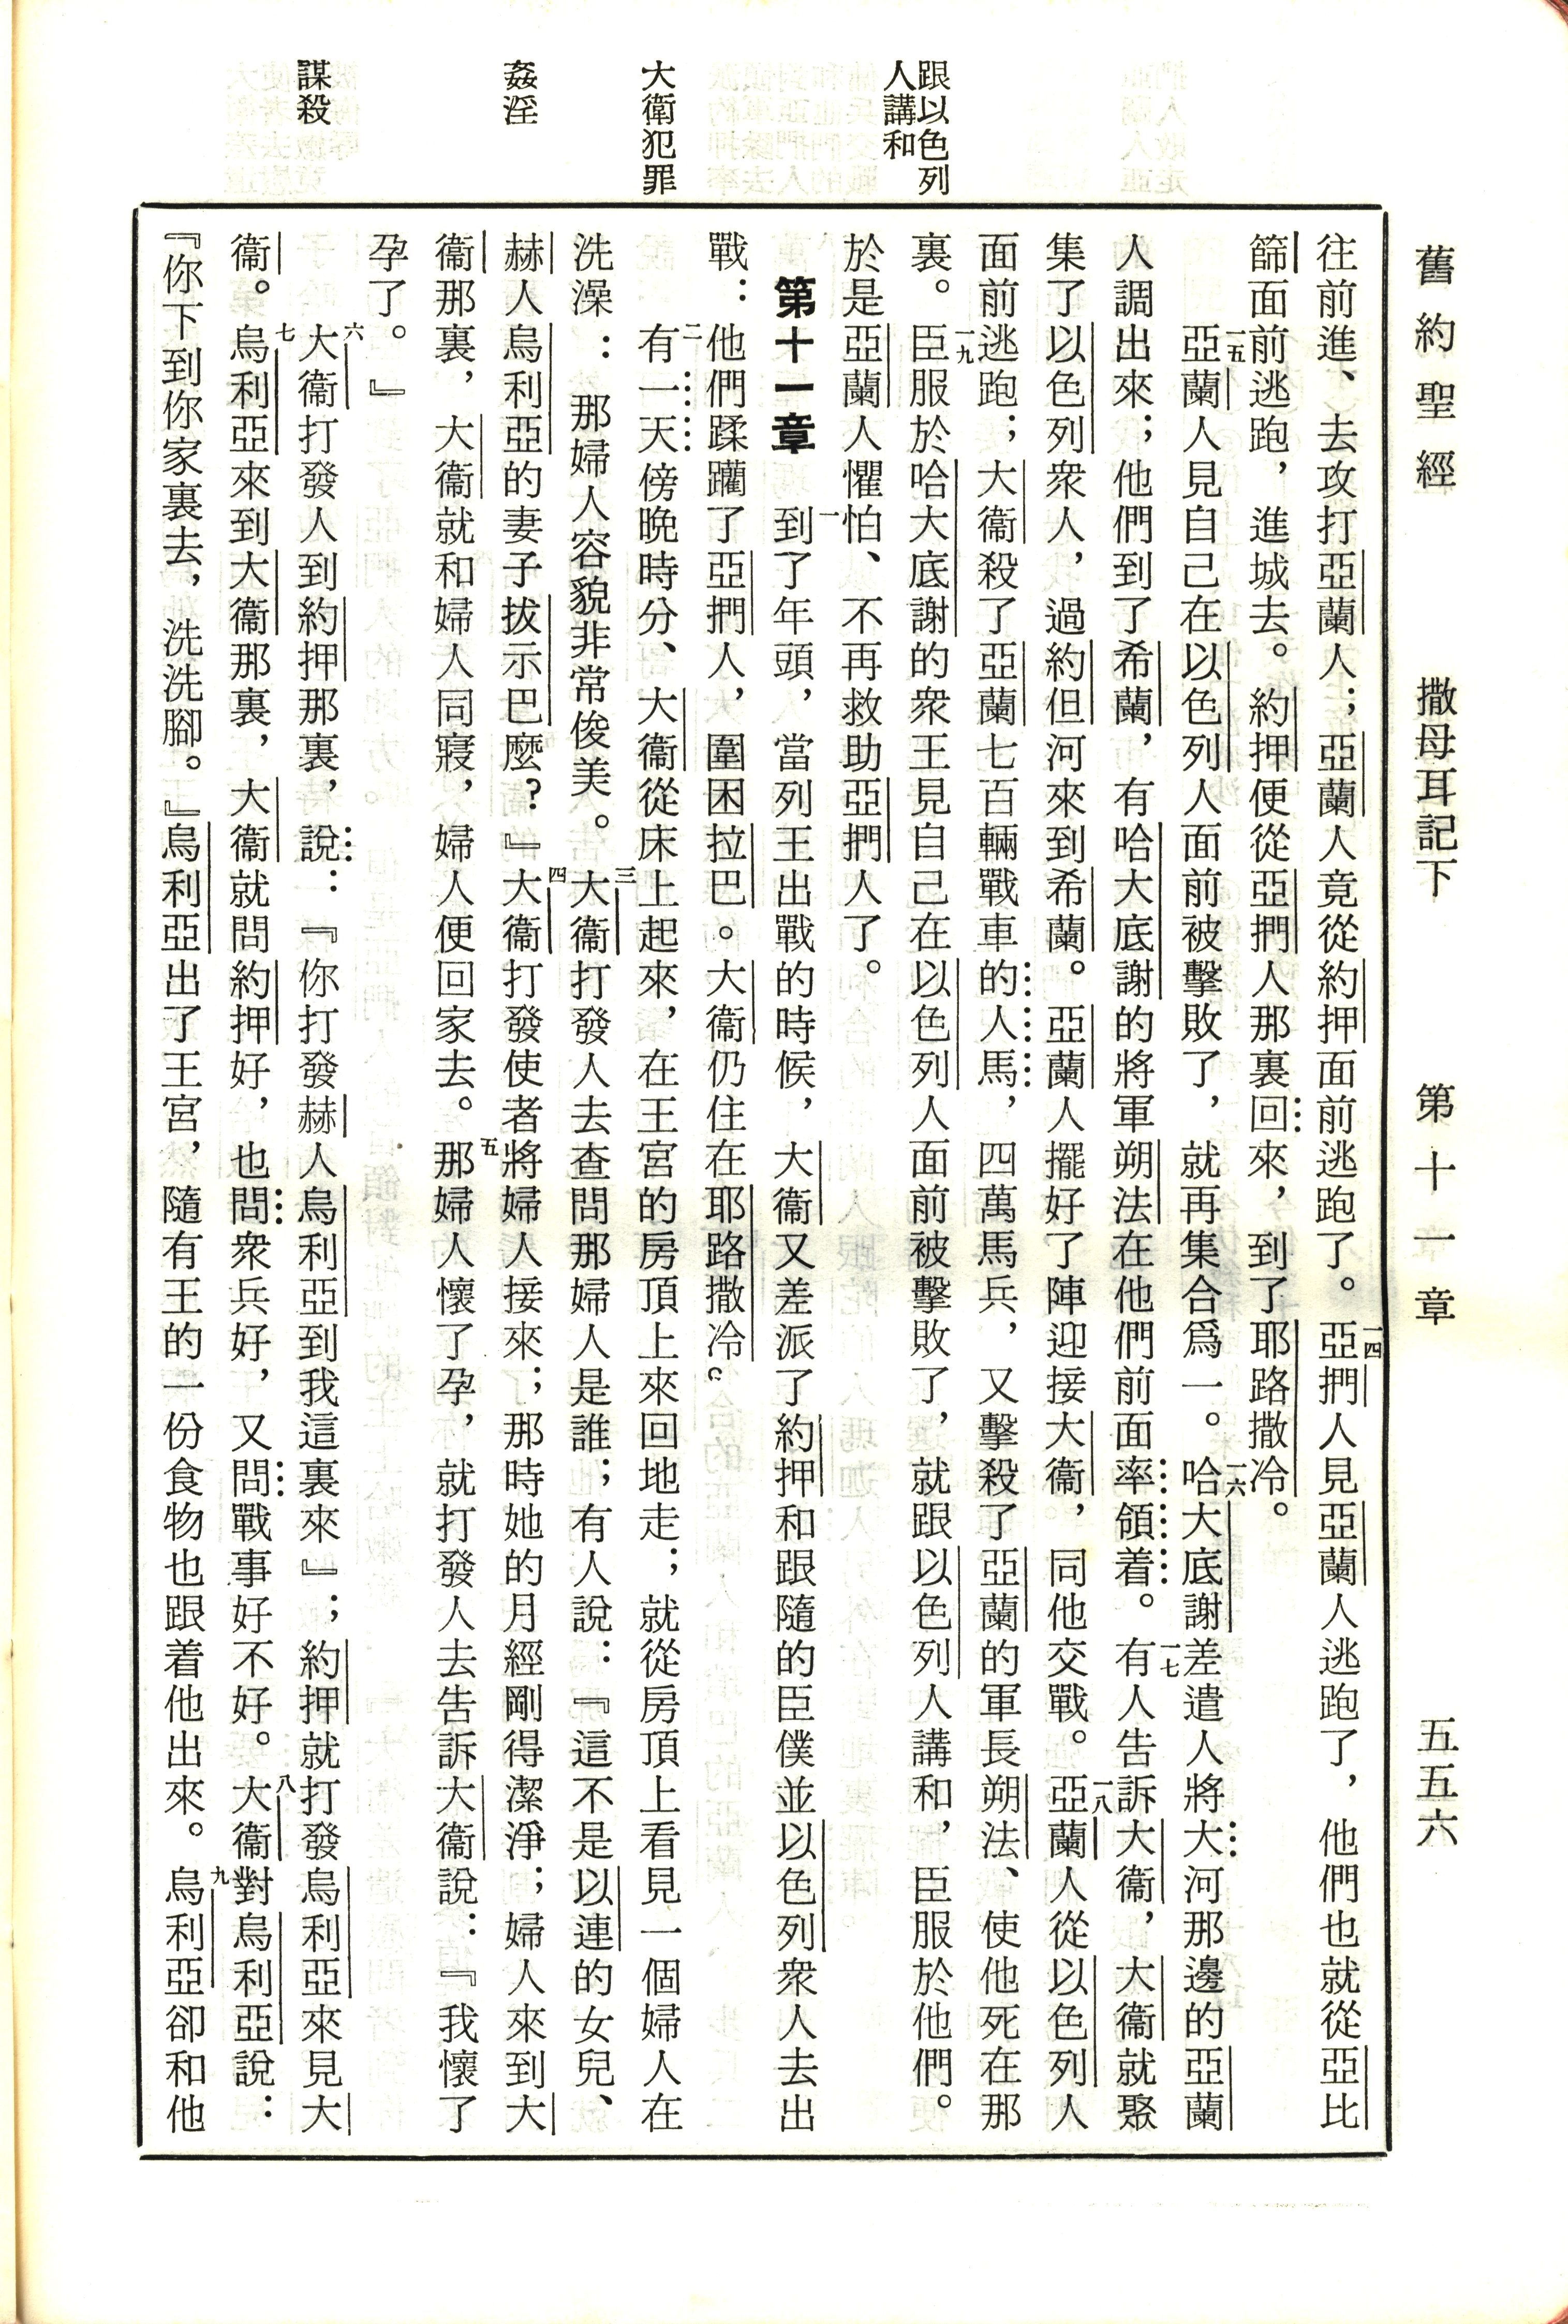 舊約聖經　撒母耳記下　第十一章　五五六
跟以色列
人講和
大衞犯罪
姦淫
謀殺
往前進、去攻打亞蘭人；亞蘭人竟從約押面前逃跑了。一四亞捫人見亞蘭人逃跑了，他們也就從亞比
篩面前逃跑，進城去。約押便從亞捫人那裏回來，到了耶路撒冷。
一五亞蘭人見自己在以色列人面前被擊敗了，就再集合爲一。一六哈大底謝差遣人將大河那邊的亞蘭
人調出來；他們到了希蘭，有哈大底謝的將軍朔法在他們前面率領着。一七有人告訴大衞，大衞就聚
集了以色列衆人，過約但河來到希蘭。亞蘭人擺好了陣迎接大衞，同他交戰。一八亞蘭人從以色列人
面前逃跑；大衞殺了亞蘭七百輛戰車的人馬，四萬馬兵，又擊殺了亞蘭的軍長朔法、使他死在那
裏。一九臣服於哈大底謝的衆王見自己在以色列人面前被擊敗了，就跟以色列人講和，臣服於他們。
於是亞蘭人懼怕、不再救助亞捫人了。
第十一章　一到了年頭，當列王出戰的時候，大衞又差派了約押和跟隨的臣僕並以色列衆人去出
戰：他們蹂躪了亞捫人，圍困拉巴。大衞仍住在耶路撒冷。
二有一天傍晚時分、大衞從床上起來，在王宮的房頂上來回地走；就從房頂上看見一個婦人在
洗澡：那婦人容貌非常俊美。三大衞打發人去查問那婦人是誰；有人說：『這不是以連的女兒、
赫人烏利亞的妻子拔示巴麼？』四大衞打發使者將婦人接來；那時她的月經剛得潔淨；婦人來到大
衞那裏，大衞就和婦人同寢，婦人便回家去。五那婦人懷了孕，就打發人去告訴大衞說：『我懷了
孕了。』
六大衞打發人到約押那裏，說：『你打發赫人烏利亞到我這裏來』；約押就打發烏利亞來見大
衞。七烏利亞來到大衞那裏，大衞就問約押好，也問衆兵好，又問戰事好不好。八大衞對烏利亞說：
『你下到你家裏去，洗洗腳。』烏利亞出了王宮，隨有王的一份食物也跟着他出來。九烏利亞卻和他